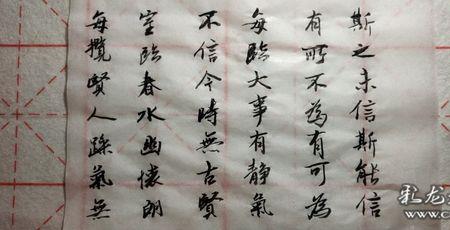 斯之未信斯能信
有所不為有可為
每臨大事有静氣
不信今時無古賢
室臨春水幽懷朗
每攬賢人躁氣無
彩龙